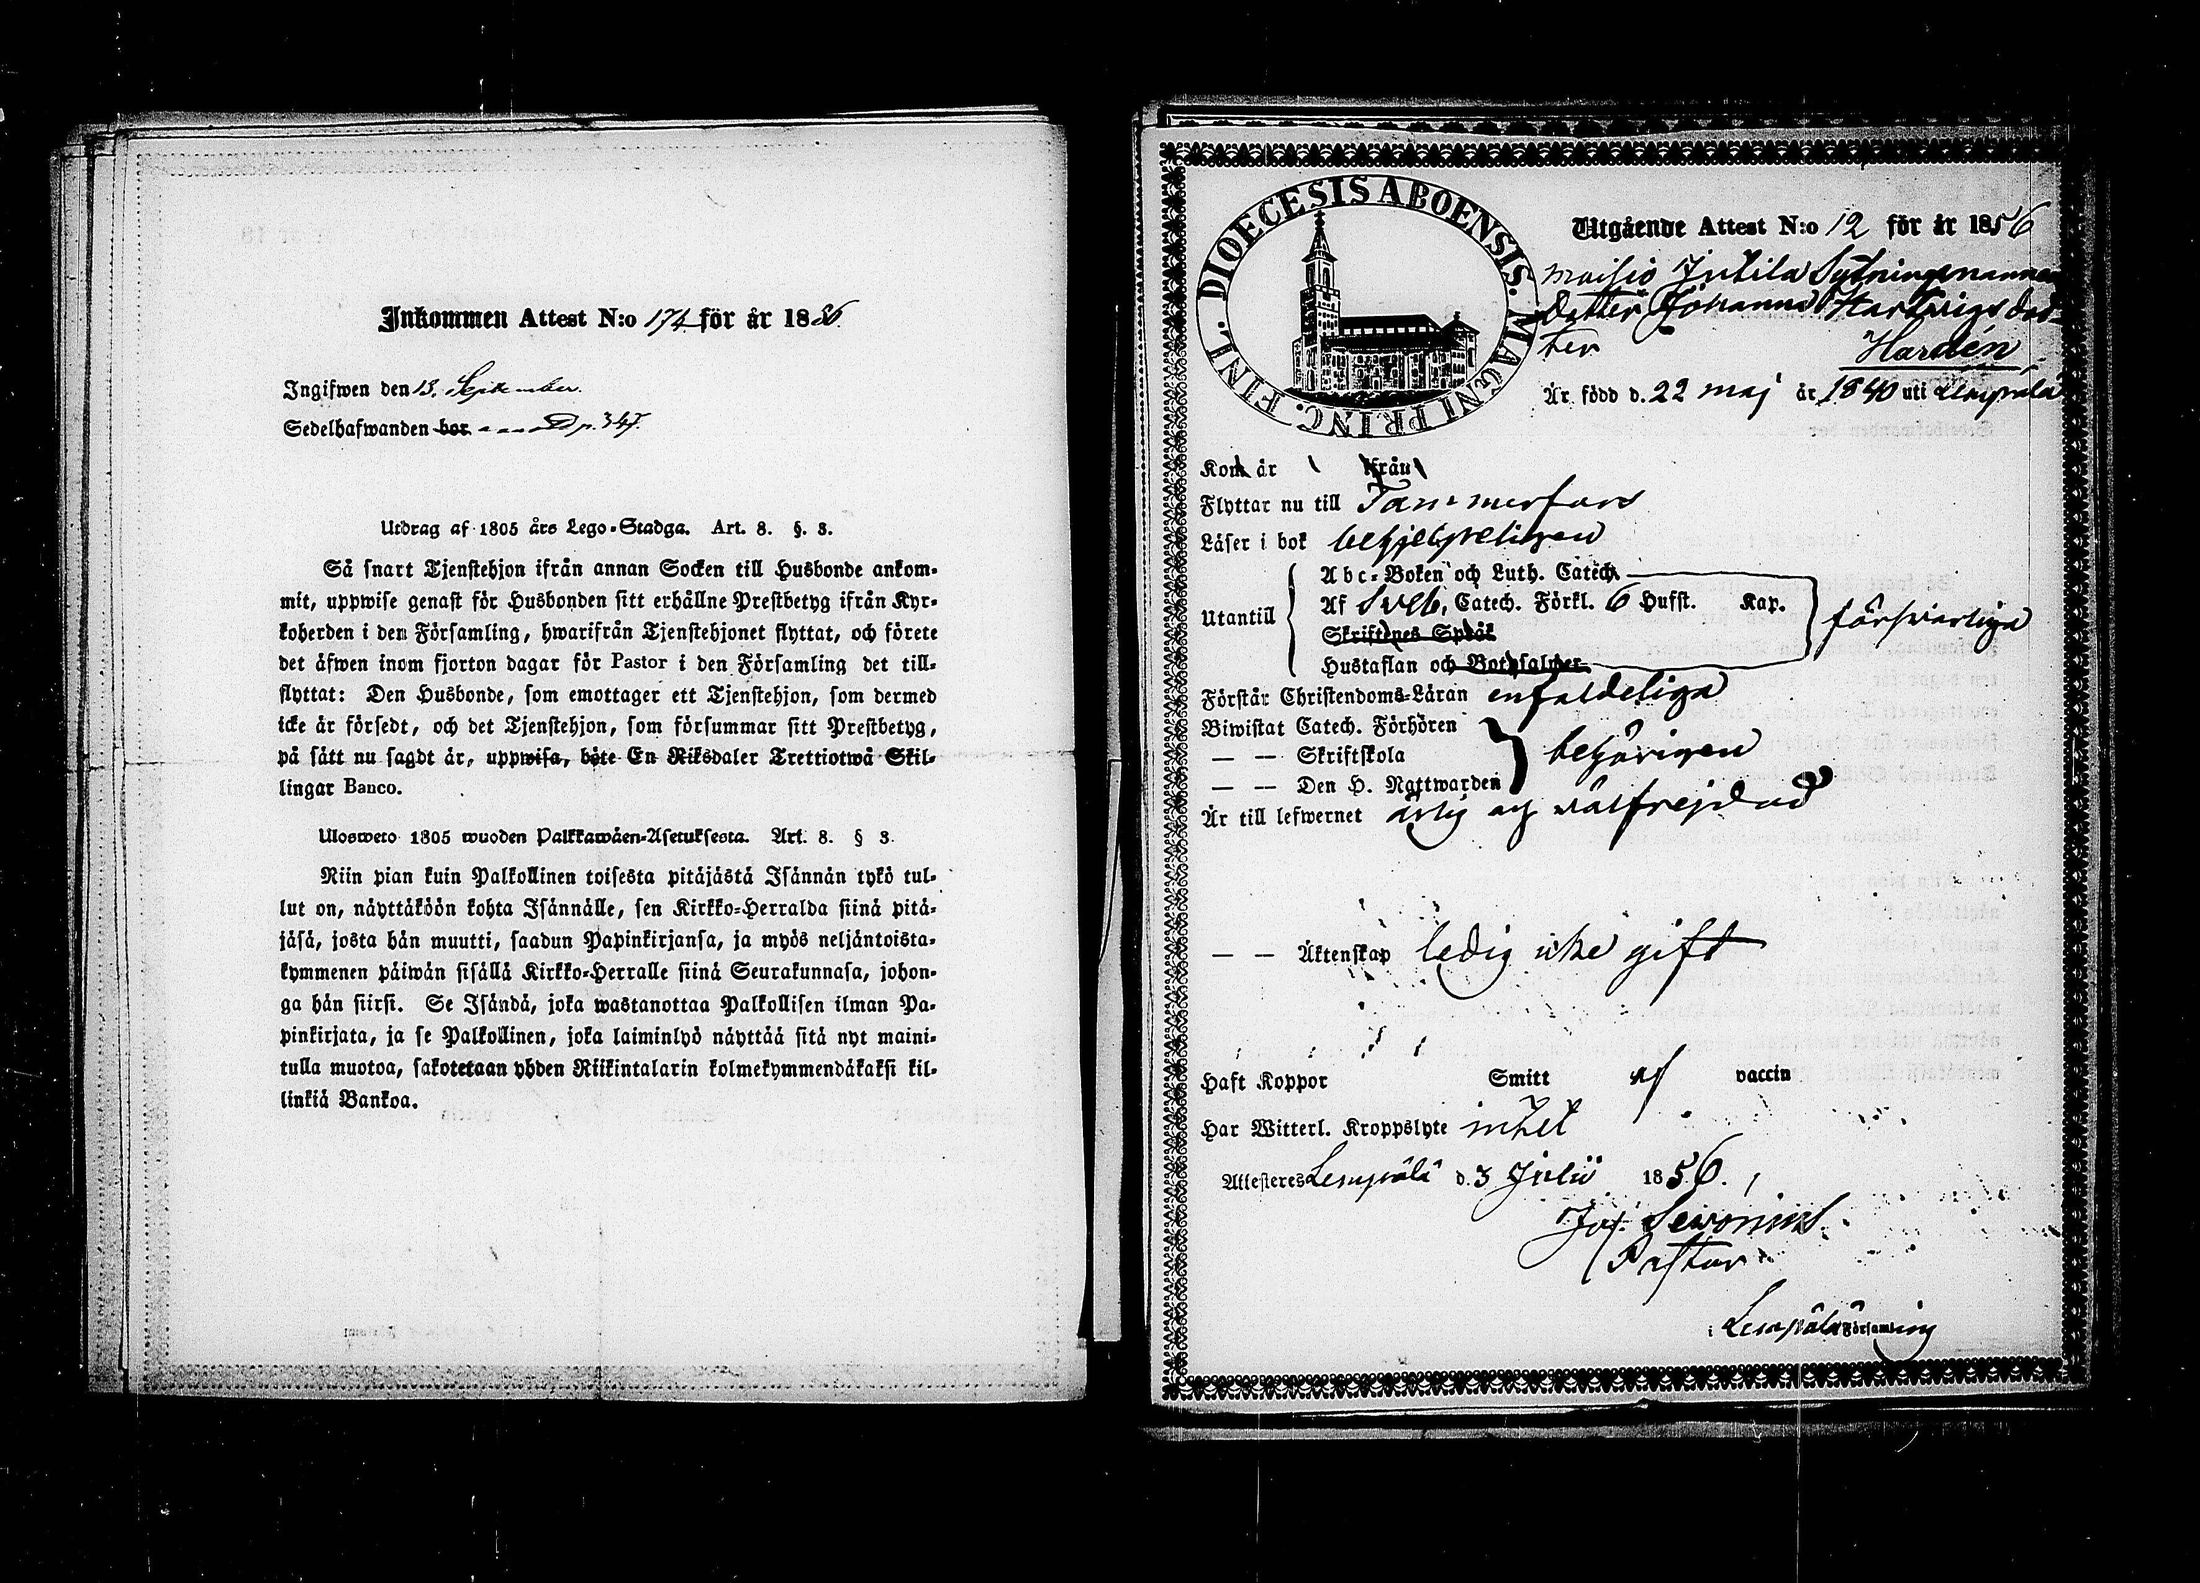 Inkommen Attest N:o 174 för år 1856.
Ingifwen den 13. September.
Sedelhafwanden bor p. 347.
Utdrag af 1805 års Lego-Stadga. Art. 8. §. 3.
Så snart Tjenstehjon ifrån annan Socken till Husbonde ankom-
mit, uppwise genast för Husbonden sitt erhållne Prestbetyg ifrån Kyr-
koherden i den Församling, hwarifrån Tjenstehjonet flyttat, och förete
det äfwen inom fjorton dagar för Pastor i den Församling det till-
flyttat: Den Husbonde, som emottager ett Tjenstehjon, som dermed
icke är försedt, och det Tjenstehjon, som försummar sitt Prestbetyg,
på sätt nu sagdt är, uppwisa, böte En Riksdaler Trettiotwå Skil-
lingar Banco.
Ulosweto 1805 wuoden Palkkawäen-Asetuksesta. Art. 8. § 3.
Niin pian kuin Palkollinen toisesta pitäjästä Isännän tykö tul-
lut on, näyttäköön kohta Isännälle, sen Kirkko-Herralda siinä pitä-
jäsä, josta hän muutti, saadun Papinkirjansa, ja myös neljäntoista-
kymmenen päiwän sisällä Kirkko-Herralle siinä Seurakunnasa, johon-
ga hän siirsi. Se Isändä, joka wastanottaa Palkollisen ilman Pa-
pinkirjata, ja se Palkollinen, joka laiminlyö näyttää sitä nyt maini-
tulla muotoa, sakotetaan yhden Riikintalarin kolmekymmendäkaksi kil-
linkiä Bankoa.
FINL. DIOECESIS ABOENSIS. MAGNI PRINC.
Utgående Attest N:o 12 för år 1856
Moisio Jutila Sytningsmannen
Dotter Johanna Hartvigs dot-
ter Hardén
Är född d. 22 maj år 1840 uti Lempälä
Kom år från
Flyttar nu till Tammerfors
Läser i bok
Utantill
Abc-Boken och Luth. Catech.
Af Sveb. Catech. Förkl. 6 Hufst. Kap.
Skriftenes Språk
Hustaflan och Botpsalmer
försvarliga
Förstår Christendoms-Läran enfaldeliga
Biwistat Catech. Förhören
— — Skriftskola
— — Den H. Nattwarden
behörigen
Är till lefwernet ärlig och välfrejdad
— — Äktenskap ledig icke gift
Haft Koppor Smitt af vaccin
Har Witterl. Kroppslyte intet
Attesteres Lempälä d. 3 Julii 1856.
Jos. Sevonius
Pastor
i Lempälä Församling